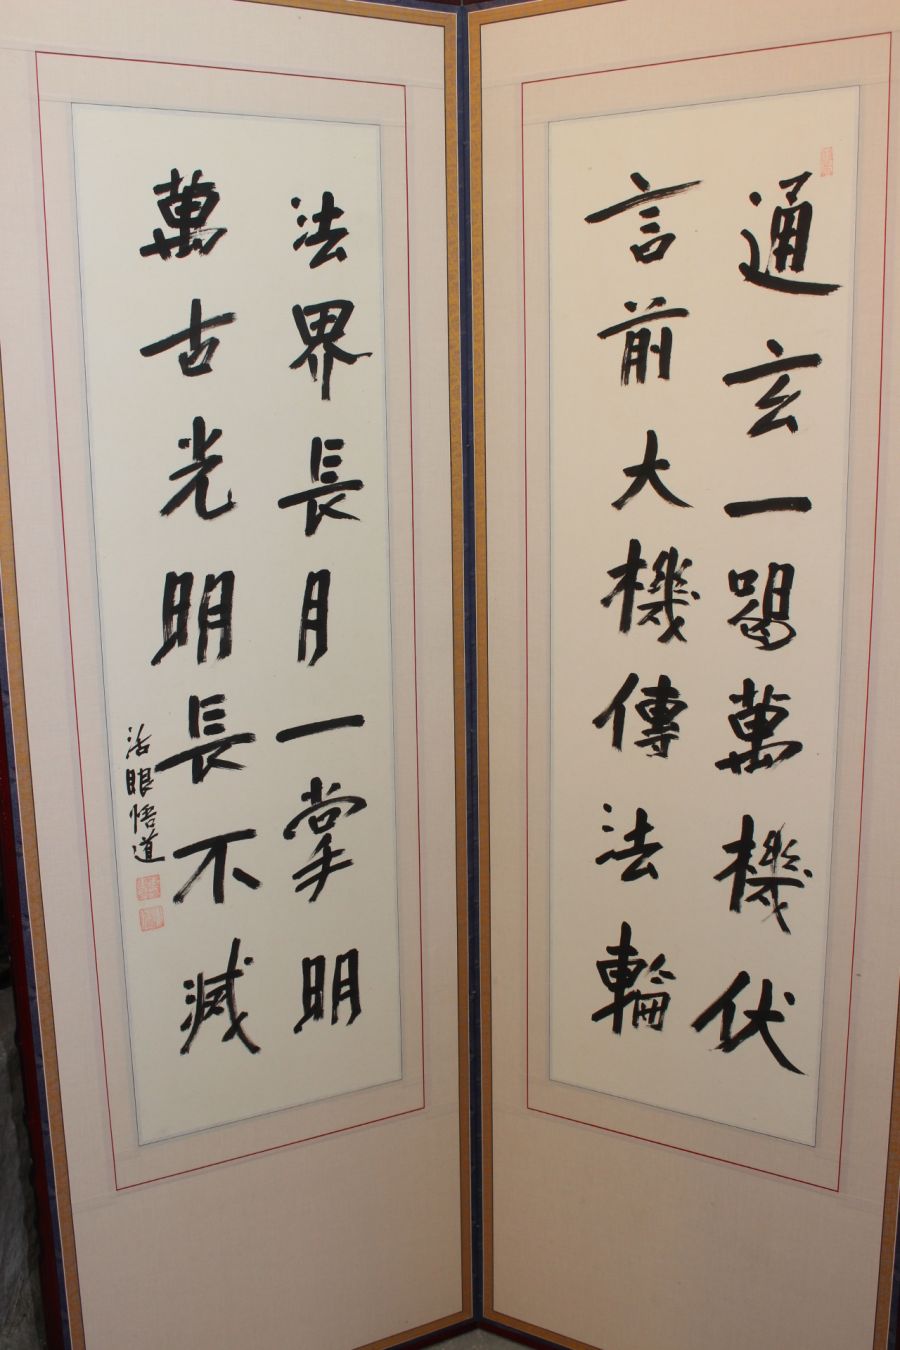 通玄一喝萬機伏
言前大機傳法輪
法界長月一掌明
萬古光明長不滅
活眼悟道